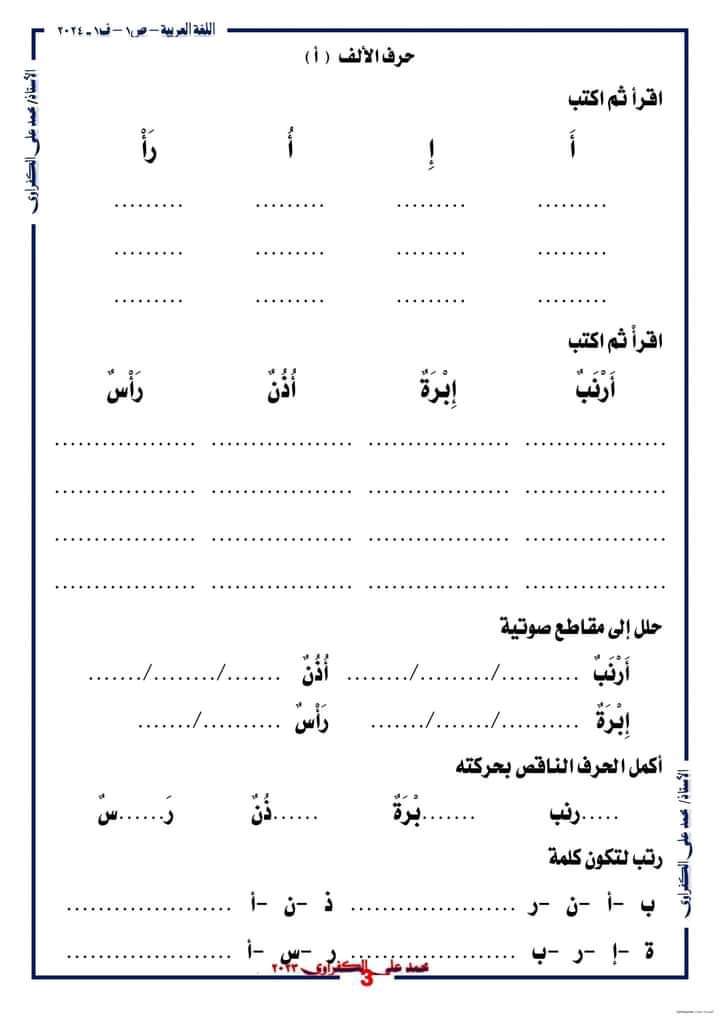 اللغة العربية – ص١ – ف١ - ٢٠٢٤
الأستاذ/ محمد على الكفراوى
حرف الألف ( أ )
اقرأ ثم اكتب
أَ إِ أُ رَأْ
......... ......... ......... .........
......... ......... ......... .........
......... ......... ......... .........
اقرأ ثم اكتب
أَرْنَبٌ إِبْرَةٌ أُذُنٌ رَأْسٌ
.................. .................. .................. ..................
.................. .................. .................. ..................
.................. .................. .................. ..................
.................. .................. .................. ..................
حلل إلى مقاطع صوتية
أَرْنَبٌ ........../........./........ أُذُنٌ ......./......../.......
إِبْرَةٌ ........../......./....... رَأْسٌ ........../.......
أكمل الحرف الناقص بحركته
.....رنب .......بْرَةٌ ......ذُنٌ رَ......سٌ
رتب لتكون كلمة
ب -أ -ن -ر ..................... ذ -ن -أ .....................
ة -إ -ر -ب ..................... ر -س -أ .....................
الأستاذ/ محمد على الكفراوى
محمد على الكفراوى ٢٠٢٣
3